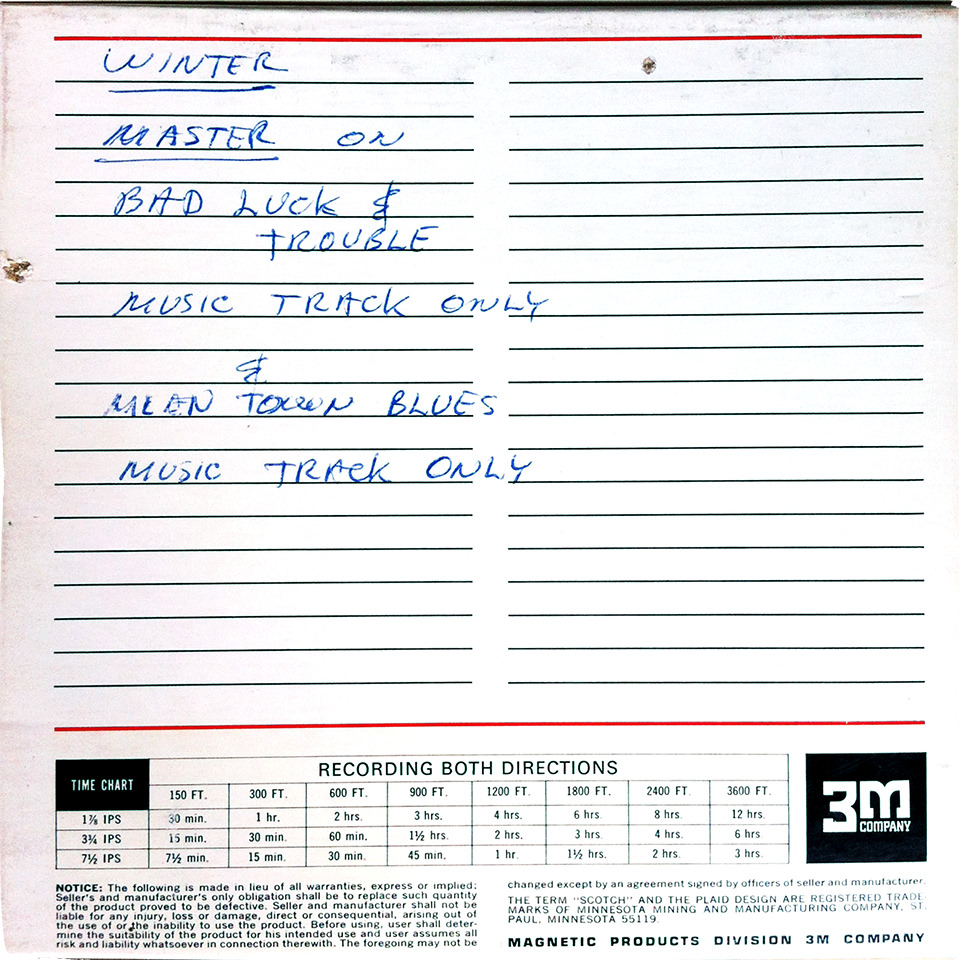 WINTER
MASTER ON
BAD LUCK &
TROUBLE
MUSIC TRACK ONLY
&
MEAN TOWN BLUES
MUSIC TRACK ONLY
TIME CHART
RECORDING BOTH DIRECTIONS
150 FT. 300 FT. 600 FT. 900 FT. 1200 FT. 1800 FT. 2400 FT. 3600 FT.
1⅞ IPS 30 min. 1 hr. 2 hrs. 3 hrs. 4 hrs. 6 hrs. 8 hrs. 12 hrs.
3¾ IPS 15 min. 30 min. 60 min. 1½ hrs. 2 hrs. 3 hrs. 4 hrs. 6 hrs
7½ IPS 7½ min. 15 min. 30 min. 45 min. 1 hr. 1½ hrs. 2 hrs. 3 hrs.
3M
COMPANY
NOTICE: The following is made in lieu of all warranties, express or implied:
Seller's and manufacturer's only obligation shall be to replace such quantity
of the product proved to be defective. Seller and manufacturer shall not be
liable for any injury, loss or damage, direct or consequential, arising out of
the use of or the inability to use the product. Before using, user shall deter-
mine the suitability of the product for his intended use and user assumes all
risk and liability whatsoever in connection therewith. The foregoing may not be
changed except by an agreement signed by officers of seller and manufacturer.
THE TERM "SCOTCH" AND THE PLAID DESIGN ARE REGISTERED TRADE
MARKS OF MINNESOTA MINING AND MANUFACTURING COMPANY, ST.
PAUL, MINNESOTA 55119.
MAGNETIC PRODUCTS DIVISION 3M COMPANY